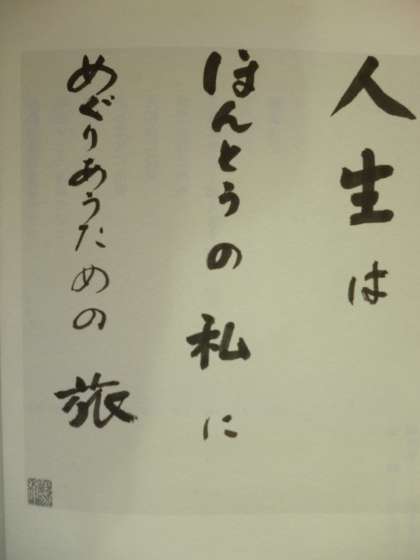 人生は
ほんとうの私に
めぐりあうための旅